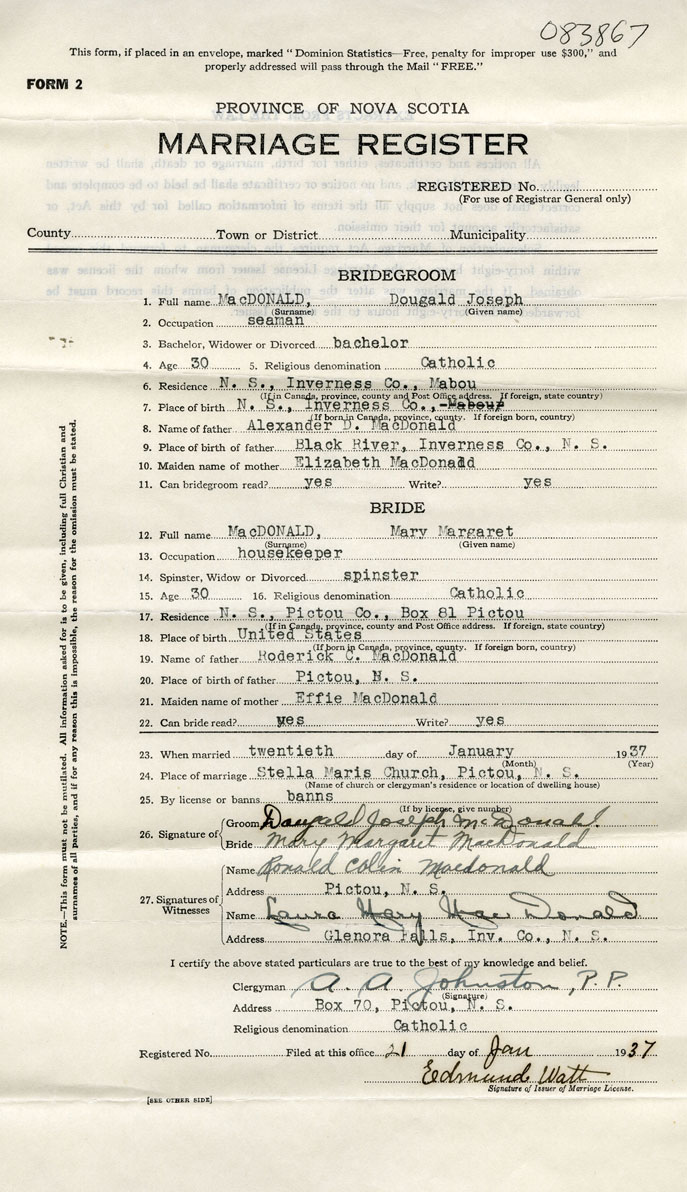 083867
This form, if placed in an envelope, marked "Dominion Statistics—Free, penalty for improper use $300," and
properly addressed will pass through the Mail "FREE."
FORM 2
PROVINCE OF NOVA SCOTIA
MARRIAGE REGISTER
REGISTERED No.
(For use of Registrar General only)
County Town or District Municipality
BRIDEGROOM
1. Full name MacDONALD, Dougald Joseph
(Surname) (Given name)
2. Occupation seaman
3. Bachelor, Widower or Divorced bachelor
4. Age 30 5. Religious denomination Catholic
6. Residence N. S., Inverness Co., Mabou
(If in Canada, province, county and Post Office address. If foreign, state country)
7. Place of birth N. S., Inverness Co., Mabou
(If born in Canada, province, county. If foreign born, country)
8. Name of father Alexander D. MacDonald
9. Place of birth of father Black River, Inverness Co., N. S.
10. Maiden name of mother Elizabeth MacDonald
11. Can bridegroom read? yes Write? yes
BRIDE
12. Full name MacDONALD, Mary Margaret
(Surname) (Given name)
13. Occupation housekeeper
14. Spinster, Widow or Divorced spinster
15. Age 30 16. Religious denomination Catholic
17. Residence N. S., Pictou Co., Box 81 Pictou
(If in Canada, province, county and Post Office address. If foreign, state country)
18. Place of birth United States
(If born in Canada, province, county. If foreign born, country)
19. Name of father Roderick C. MacDonald
20. Place of birth of father Pictou, N. S.
21. Maiden name of mother Effie MacDonald
22. Can bride read? yes Write? yes
23. When married twentieth day of January 1937
(Month) (Year)
24. Place of marriage Stella Maris Church, Pictou, N. S.
(Name of church or clergyman's residence or location of dwelling house)
25. By license or banns banns
(If by license, give number)
26. Signature of
Groom Dougald Joseph McDonald.
Bride Mary Margaret MacDonald
27. Signatures of Witnesses
Name Ronald Colin Macdonald
Address Pictou, N. S.
Name Laura Mary MacDonald
Address Glenora Falls, Inv. Co., N. S.
I certify the above stated particulars are true to the best of my knowledge and belief.
Clergyman A. A. Johnston, P. P.
(Signature)
Address Box 70, Pictou, N. S.
Religious denomination Catholic
Registered No. Filed at this office 21 day of Jan 1937
Edmund Watt
Signature of Issuer of Marriage License.
[SEE OTHER SIDE]
NOTE.—This form must not be mutilated. All information asked for is to be given, including full Christian and
surnames of all parties, and if for any reason this is impossible, the reason for the omission must be stated.